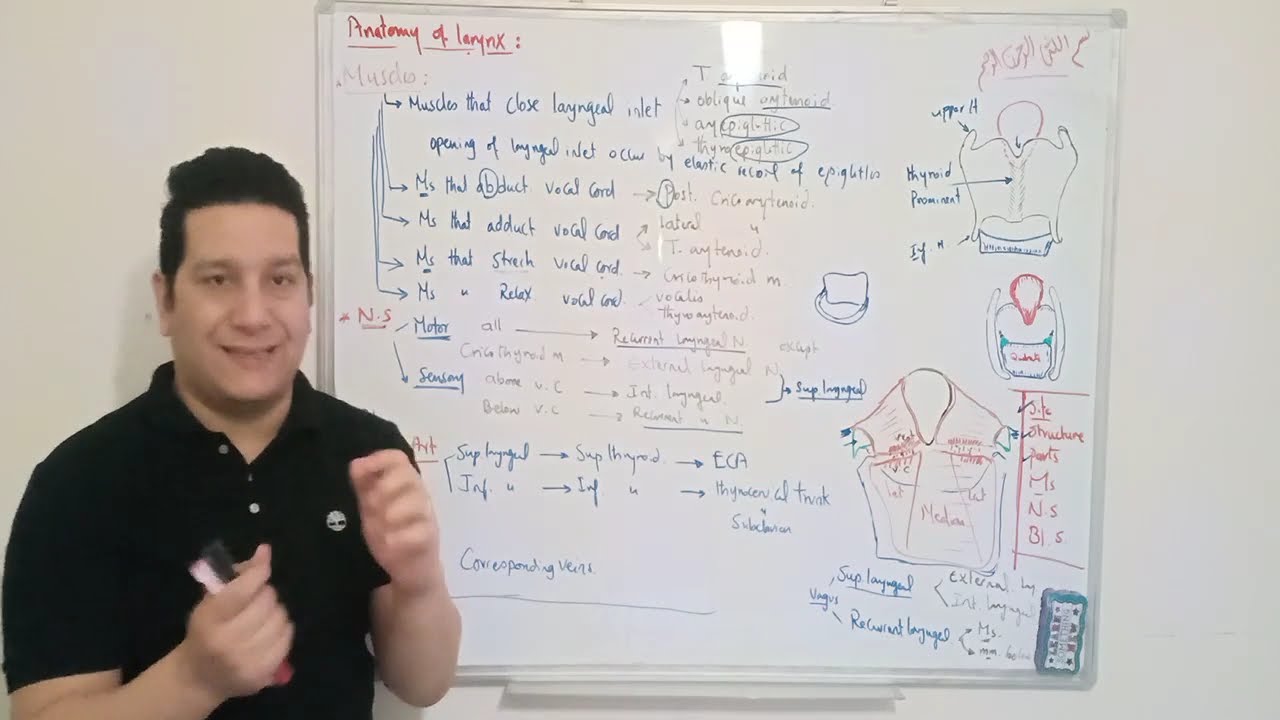 Anatomy of larynx:
بسم الله الرحمن الرحيم
Muscles:
Muscles that close laryngeal inlet
T. arytenoid
oblique arytenoid
aryepiglottic
thyroepiglottic
opening of laryngeal inlet occurs by elastic recoil of epiglottis
Ms that abduct vocal cord → Post. Cricoarytenoid.
Ms that adduct vocal cord
Lateral "
T. arytenoid.
Ms that Strech vocal cord. → Cricothyroid m.
Ms " Relax vocal cord.
vocalis
thyroarytenoid.
* N.S
Motor
all → Recurrent laryngeal N. except
Cricothyroid m → External laryngeal N
Sensory
above v.C → Int. laryngeal.
Below v.C → Recurrent " N.
Sup laryngeal
Art
Sup laryngeal → Sup thyroid. → ECA
Inf. " → Inf. " → thyrocervical trunk
Subclavian
Corresponding veins.
upper H
thyroid
Prominent
Inf. H.
Quadrate
Site
Structure
Parts
Ms
N.S
Bl. S.
v.C
Lat
Lat
Median
Vagus
Sup. laryngeal
External
Int. laryngeal
Recurrent laryngeal
Ms.
mm.